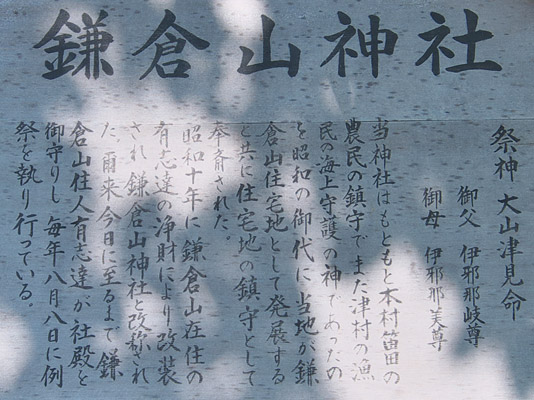 鎌倉山神社
祭神 大山津見命
御父 伊邪那岐尊
御母 伊邪那美尊
当神社はもともと本村笛田の
農民の鎮守でまた津村の漁
民の海上守護の神であったの
を昭和の御代に当地が鎌
倉山住宅地として発展する
と共に住宅地の鎮守として
奉斎された
昭和十年に鎌倉山在住の
有志達の浄財により改装
され鎌倉山神社と改称され
た 爾来今日に至るまで鎌
倉山住人有志達が社殿を
御守りし 毎年八月八日に例
祭を執り行っている。